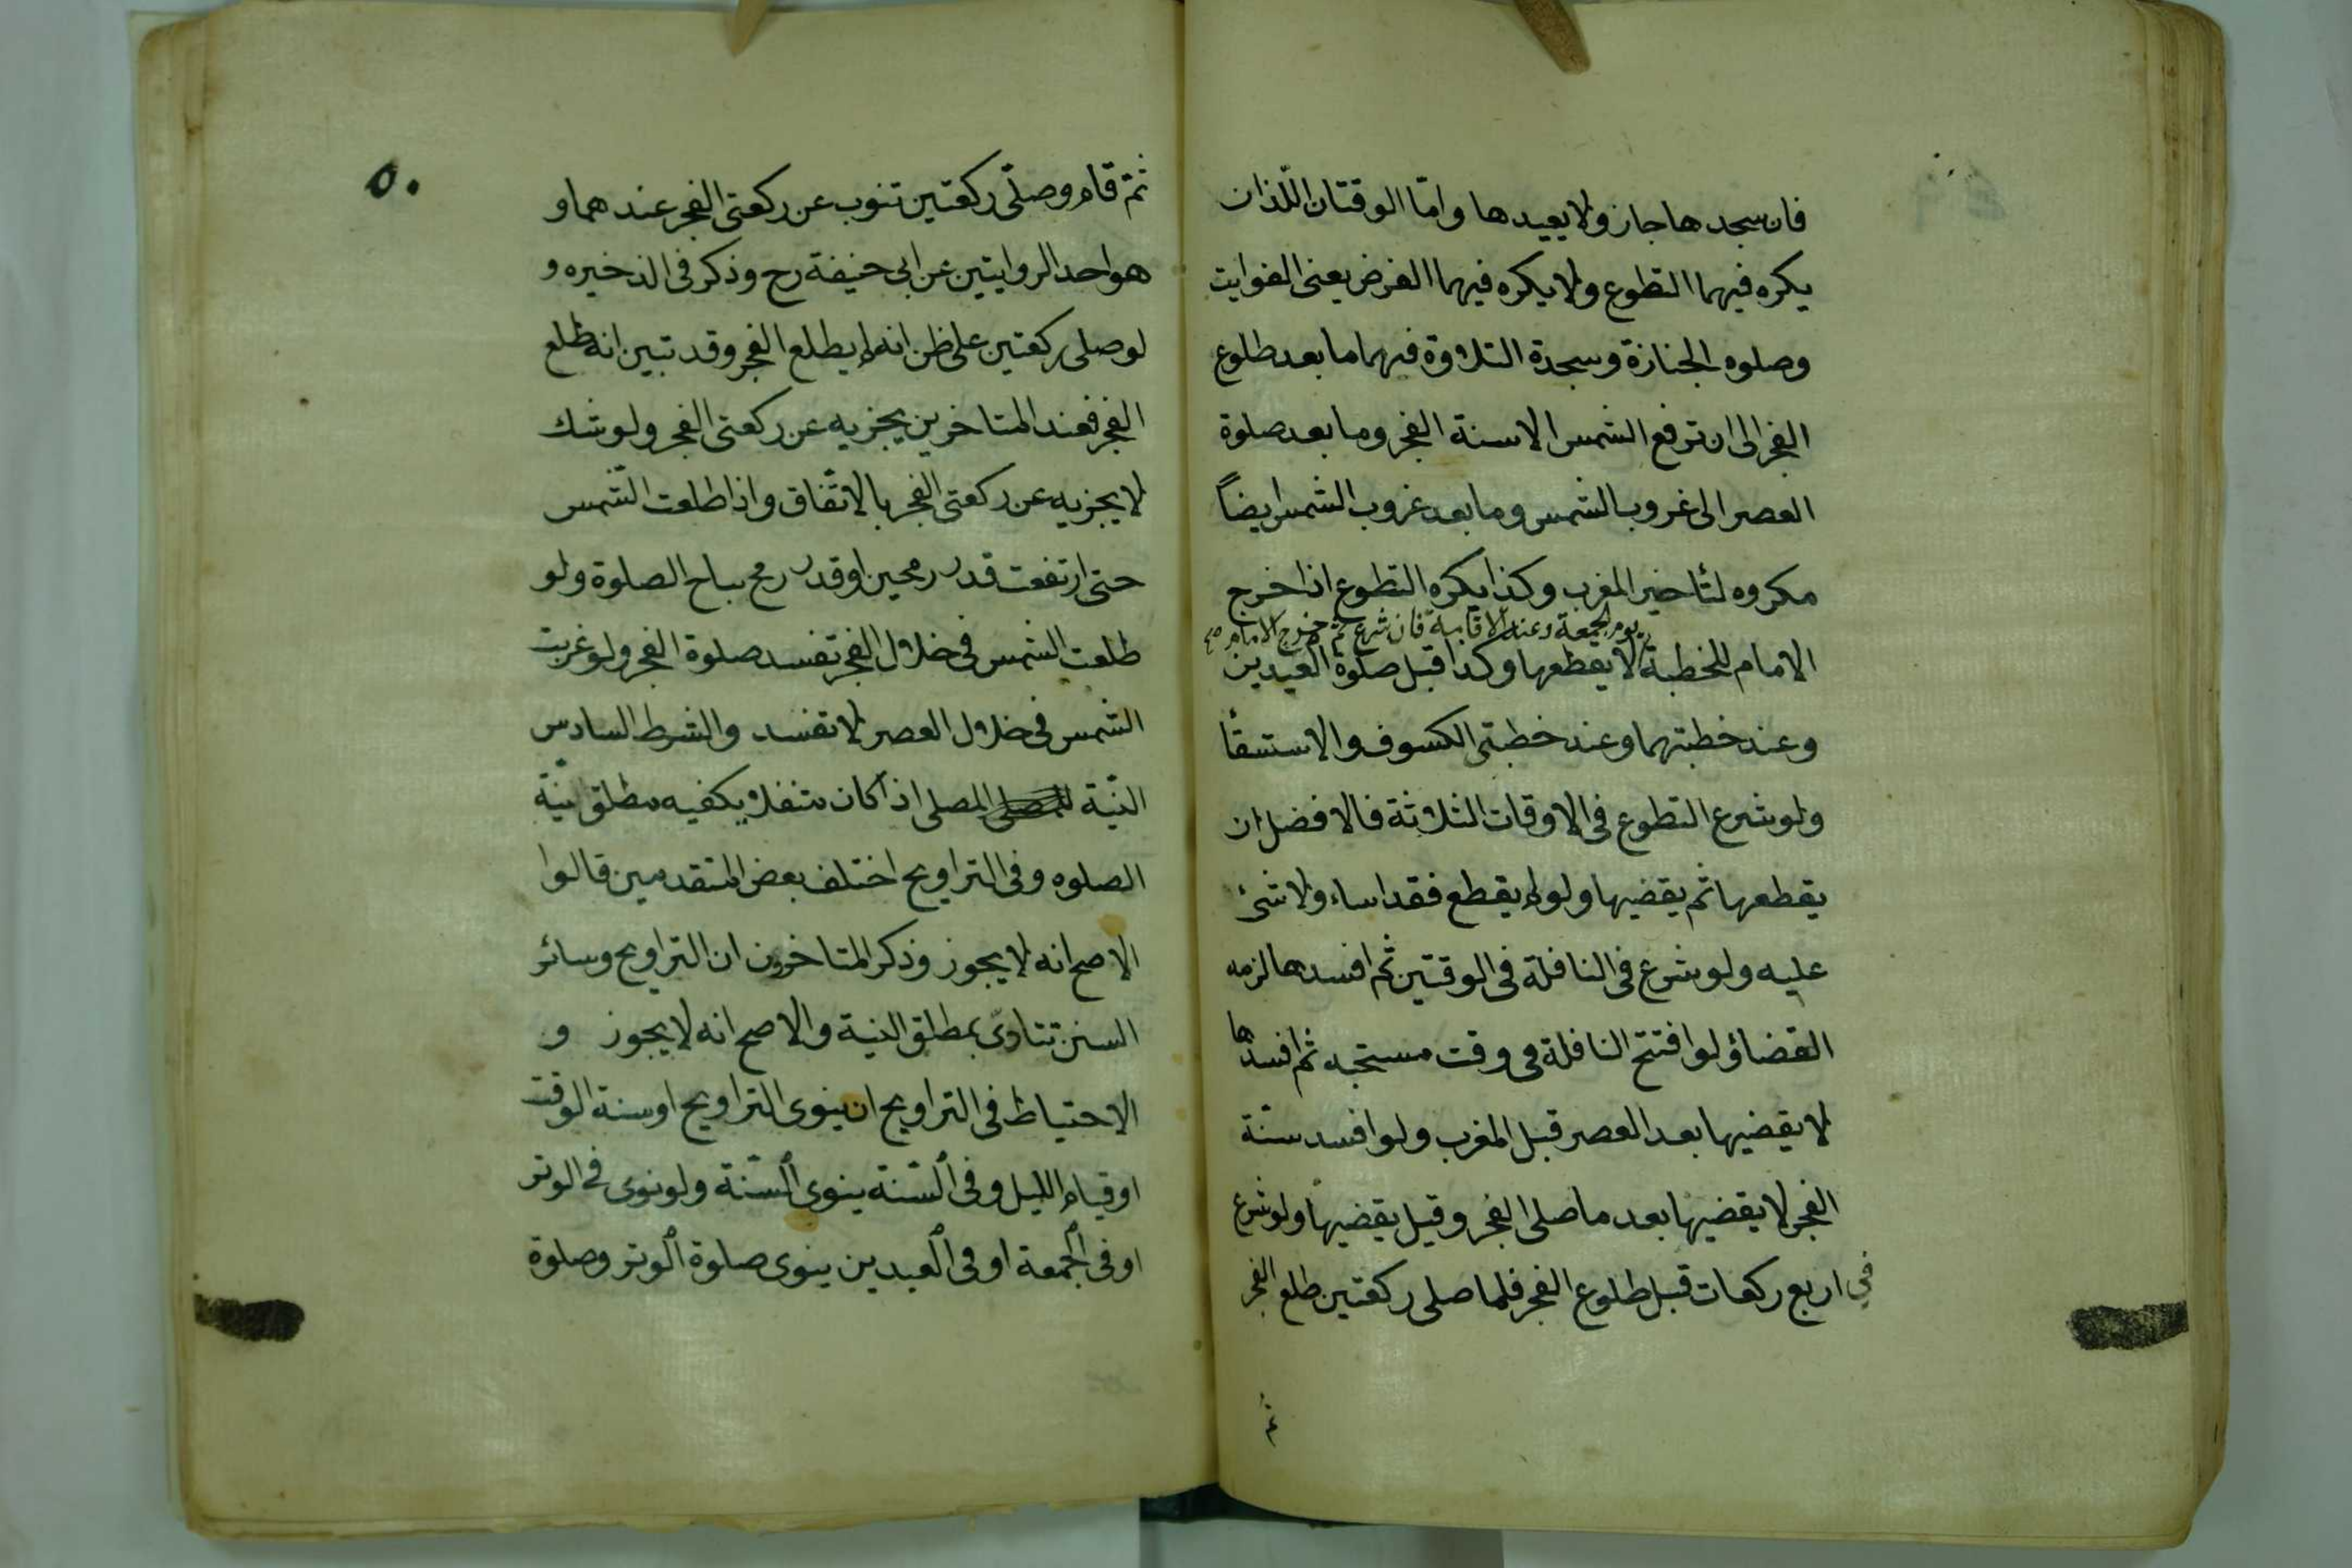 فان سجدها جاز ولا يعيدها وامّا الوقتان اللّذان
يكره فيهما التطوع ولا يكره فيهما الفرض يعنى الفوايت
وصلوه الجنازة وسجدة التلاوة فهما ما بعد طلوع
الفجر الى ان ترفع الشمس الا سنة الفجر وما بعد صلوة
العصر الى غروب الشمس وما بعد غروب الشمس ايضاً
مكروه لتأخير المغرب وكذا يكره التطوع اذا خرج
يوم الجمعة وعند الاقامة فان شرع ثم خرج الامام صح
الامام للخطبة لا يقطعها وكذا قبل صلوة العيدين
وعند خطبتهما وعند خطبتى الكسوف والاستسقأ
ولو شرع التطوع فى الاوقات الثلاثة فالافضل ان
يقطعها ثم يقضيها ولو لم يقطع فقد اساء ولا شئ
عليه ولو شرع فى النافلة فى الوقتين ثم افسدها لزمه
القضاؤ لو افتتح النافلة فى وقت مستحبه ثم افسدها
لا يقضيها بعد العصر قبل المغرب ولو افسد سنّة
الفجر لا يقضيها بعد ما صلى الفجر وقيل يقضيها ولو شرع
في اربع ركعات قبل طلوع الفجر فلما صلى ركعتين طلع الفجر
ثم
٥٠
ثمّ قام وصلّى ركعتين تنوب عن ركعتى الفجر عندهما و
هو احد الروايتين عن ابى حنيفة رح وذكر فى الذخيره و
لو صلى ركعتين على ظن انه لم يطلع الفجر وقد تبين انه طلع
الفجر فعند المتاخرين يجزيه عن ركعتى الفجر ولو شك
لا يجزيه عن ركعتى الفجر بالاتّفاق واذا طلعت الشمس
حتى ارتفعت قدر رمحين او قدر رمح يباح الصلوة ولو
طلعت الشمس فى خلال الفجر تفسد صلوة الفجر ولو غربت
الشمس فى خلال العصر لا تفسد والشرط السادس
النيّة المصلى اذا كان متنفلا يكفيه مطلق نيّة
الصلوه وفى التراويح اختلف بعض المتقدمين قالوا
الاصح انه لا يجوز وذكر المتاخرون ان التراويح وسائر
السنن تتادّى بمطلق النية والاصح انه لا يجوز و
الاحتياط فى التراويح ان ينوى التراويح او سنة الوقت
او قيام الليل وفى السّنة ينوى السّنة ولو نوى فى الوتر
او فى الجمعة او فى العيدين ينوى صلوة الوتر وصلوة